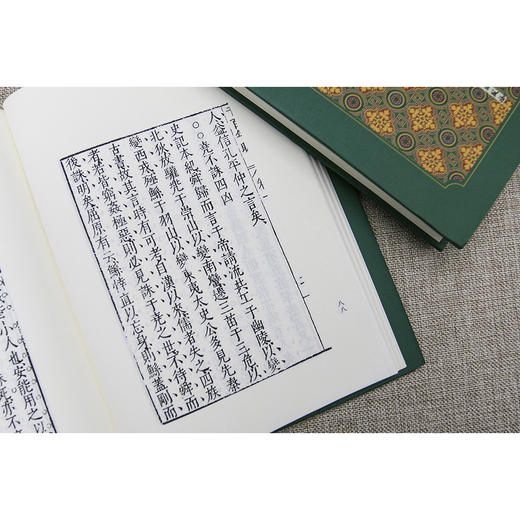 人益信孔平仲之言矣
堯不誅四凶
史記本紀舜歸而言于帝請流共工于幽陵以變
北狄放驩兜于崇山以變南蠻遷三苗于三危以
變西戎殛鯀于羽山以變東夷太史公多見先秦
古書故其言時有可考自漢以來儒者失之四族
者若皆窮姦極惡則必見誅于堯之世不待舜而
後誅明矣屈原有云鯀倖直以亡身則鯀蓋剛而
八八
小人也安能用之以
亦不